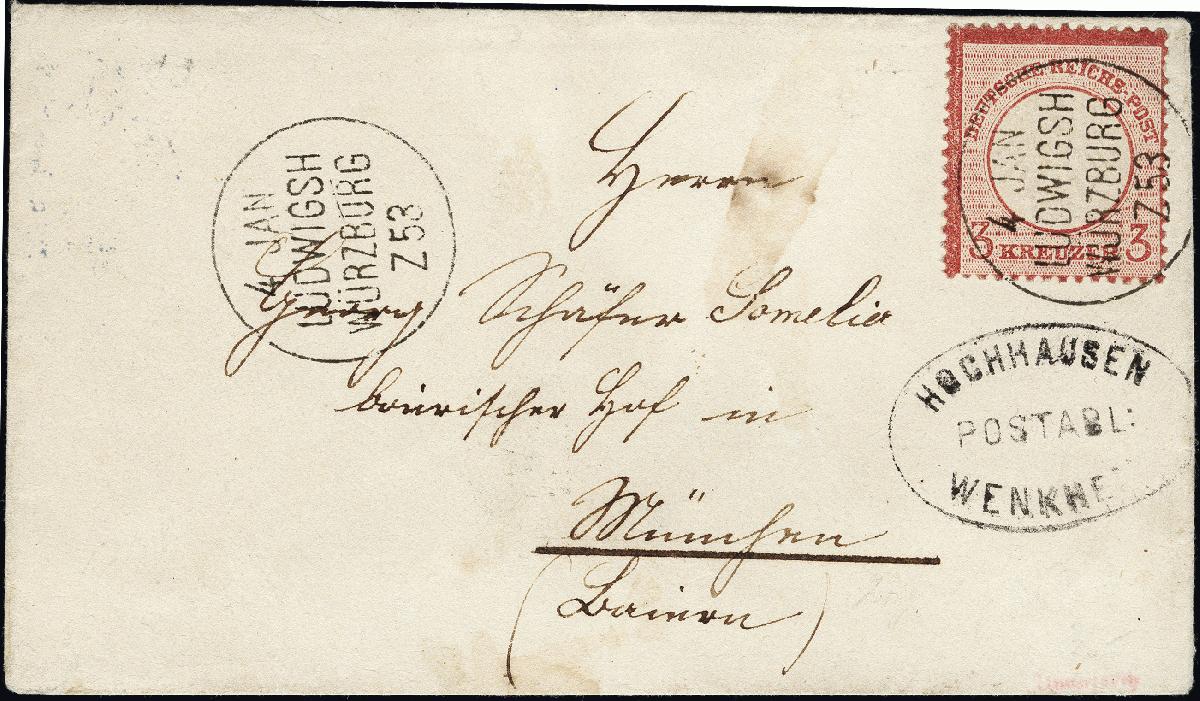 4 JAN
LUDWIGSH
WÜRZBURG
Z 53
DEUTSCHE REICHS-POST
3 KREUZER 3
4 JAN
LUDWIGSH
WÜRZBURG
Z 53
HOCHHAUSEN
POSTABL:
WENKHE
Herrn
Georg Schäfer Somelier
bairischer Hof in
München
(Baiern)